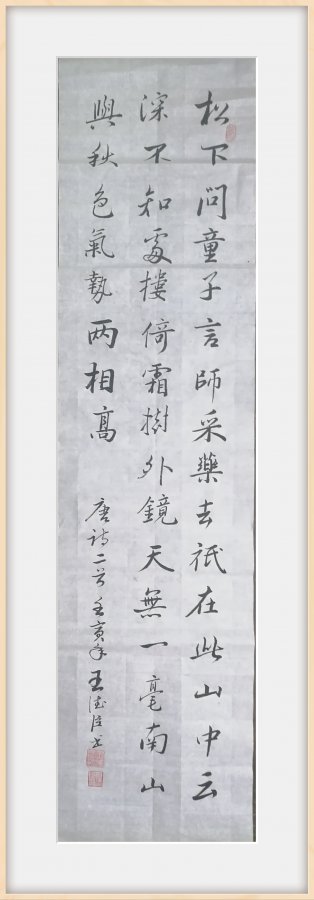 松下问童子言師采藥去祇在此山中云
深不知處樓倚霜樹外鏡天無一毫南山
與秋色氣勢两相高
唐诗二首壬寅年王德臣书